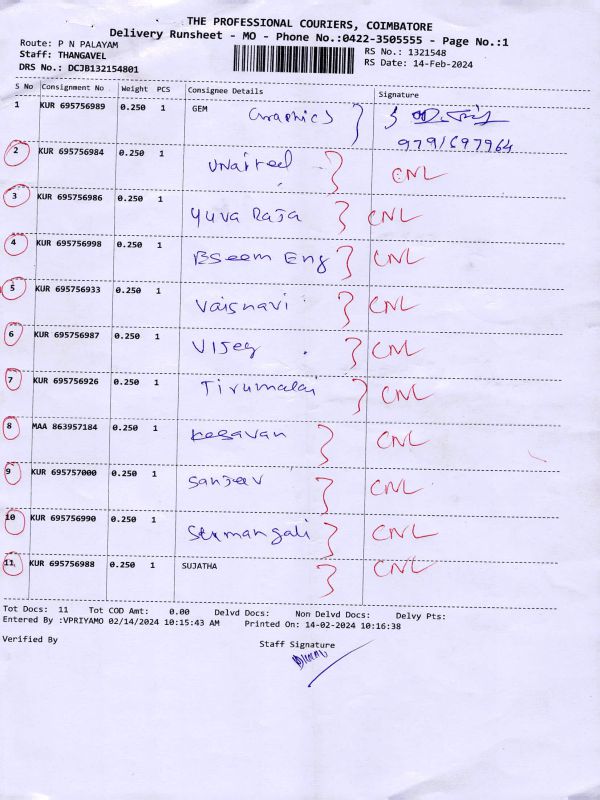 THE PROFESSIONAL COURIERS, COIMBATORE
Delivery Runsheet - MO - Phone No.:0422-3505555 - Page No.:1
Route: P N PALAYAM
RS No.: 1321548
Staff: THANGAVEL
RS Date: 14-Feb-2024
DRS No.: DCJB132154801
S No Consignment No Weight PCS Consignee Details Signature
1 KUR 695756989 0.250 1 GEM Graphics
9791697964
2 KUR 695756984 0.250 1 CNL
3 KUR 695756986 0.250 1 Yuva Raja CNL
4 KUR 695756998 0.250 1 BSeem Eng CNL
5 KUR 695756933 0.250 1 Vaisnavi CNL
6 KUR 695756987 0.250 1 Vijey CNL
7 KUR 695756926 0.250 1 Tirumalai CNL
8 MAA 863957184 0.250 1 Kesavan CNL
9 KUR 695757000 0.250 1 Sanjeev CNL
10 KUR 695756990 0.250 1 CNL
11 KUR 695756988 0.250 1 SUJATHA CNL
Tot Docs: 11 Tot COD Amt: 0.00 Delvd Docs: Non Delvd Docs: Delvy Pts:
Entered By :VPRIYAMO 02/14/2024 10:15:43 AM Printed On: 14-02-2024 10:16:38
Verified By Staff Signature